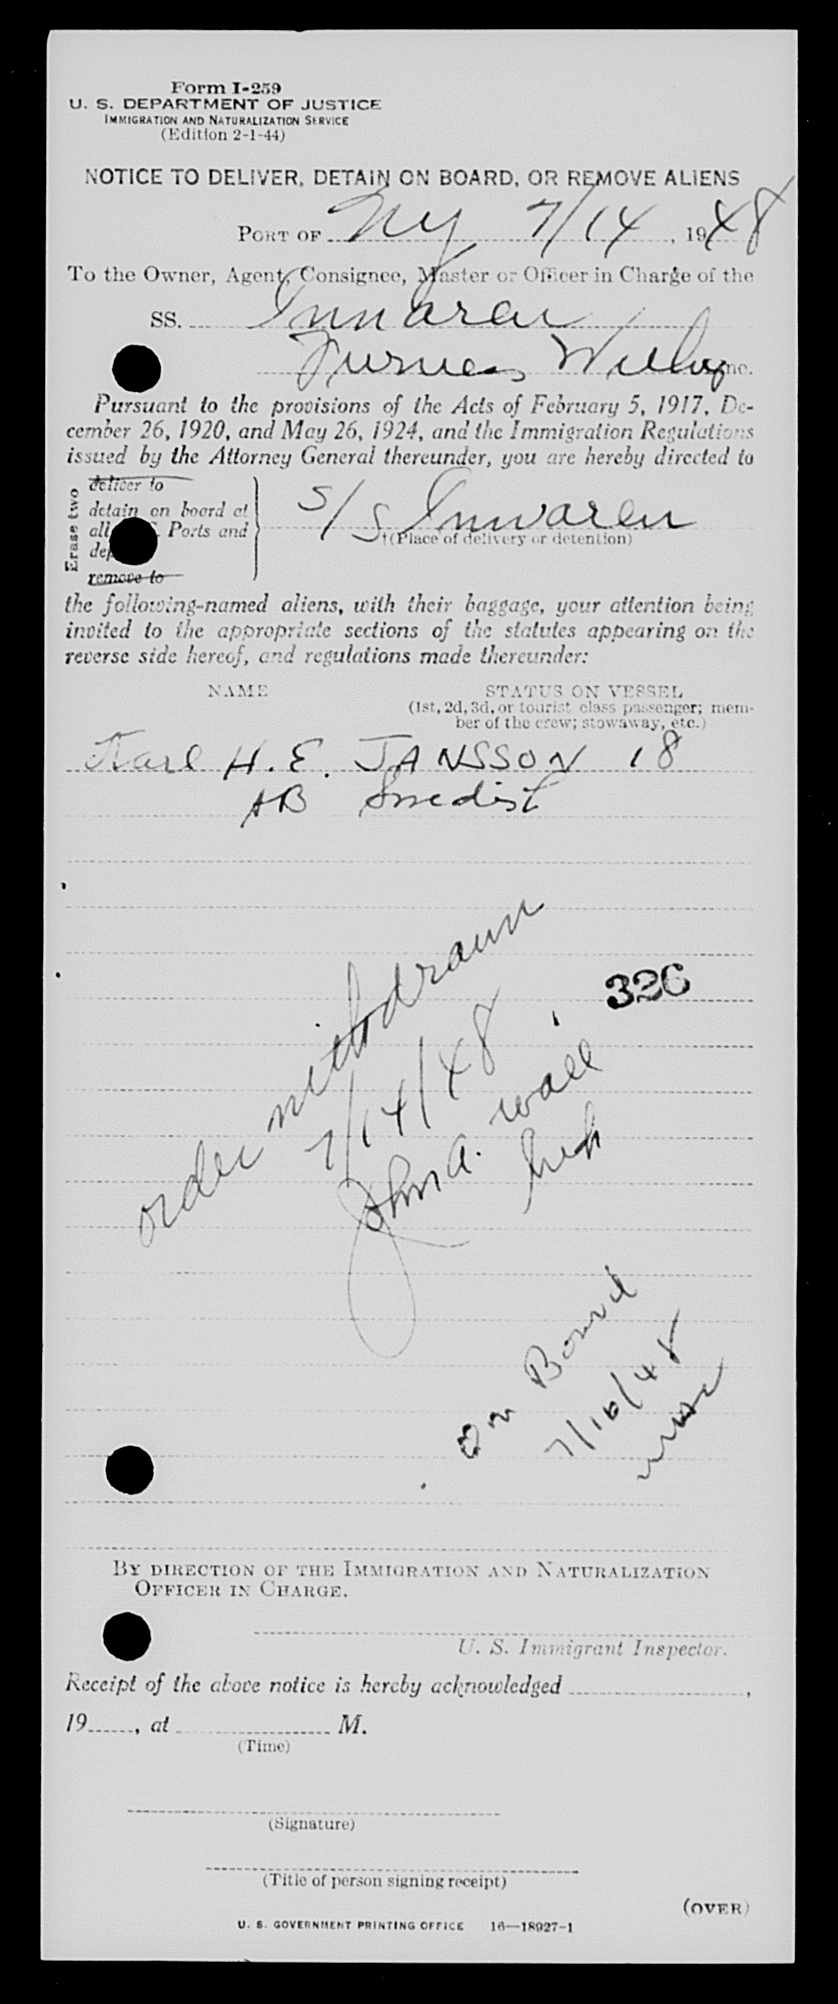 Form I-259
U. S. DEPARTMENT OF JUSTICE
IMMIGRATION AND NATURALIZATION SERVICE
(Edition 2-1-44)
NOTICE TO DELIVER, DETAIN ON BOARD, OR REMOVE ALIENS
PORT OF NY 7/14, 1948
To the Owner, Agent, Consignee, Master or Officer in Charge of the
SS. Innaren
Furness Withy
Pursuant to the provisions of the Acts of February 5, 1917, De-
cember 26, 1920, and May 26, 1924, and the Immigration Regulations
issued by the Attorney General thereunder, you are hereby directed to
Erase two
deliver to
detain on board at
all Ports and
remove to
S/S Innaren
(Place of delivery or detention)
the following-named aliens, with their baggage, your attention being
invited to the appropriate sections of the statutes appearing on the
reverse side hereof, and regulations made thereunder:
NAME STATUS ON VESSEL
(1st, 2d, 3d, or tourist class passenger; mem-
ber of the crew; stowaway, etc.)
Karl H. E. JANSSON 18
AB Swedish
326
order withdrawn
7/14/48
John A. Wall
On Board
7/16/48
BY DIRECTION OF THE IMMIGRATION AND NATURALIZATION
OFFICER IN CHARGE.
U. S. Immigrant Inspector.
Receipt of the above notice is hereby acknowledged ,
19 , at M.
(Time)
(Signature)
(Title of person signing receipt)
(OVER)
U. S. GOVERNMENT PRINTING OFFICE 16—18927-1